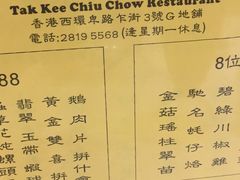 Tak Kee Chiu Chow Restaurant
香港西環卑路乍街3號G地舖
電話:2819 5568 (逢星期一休息)
88
鵝肉片拼什
黃金
翡翠玉帶蝦
8位
碧綠川椒雞
馳名蚝仔烙
金菇瑤柱翠苗